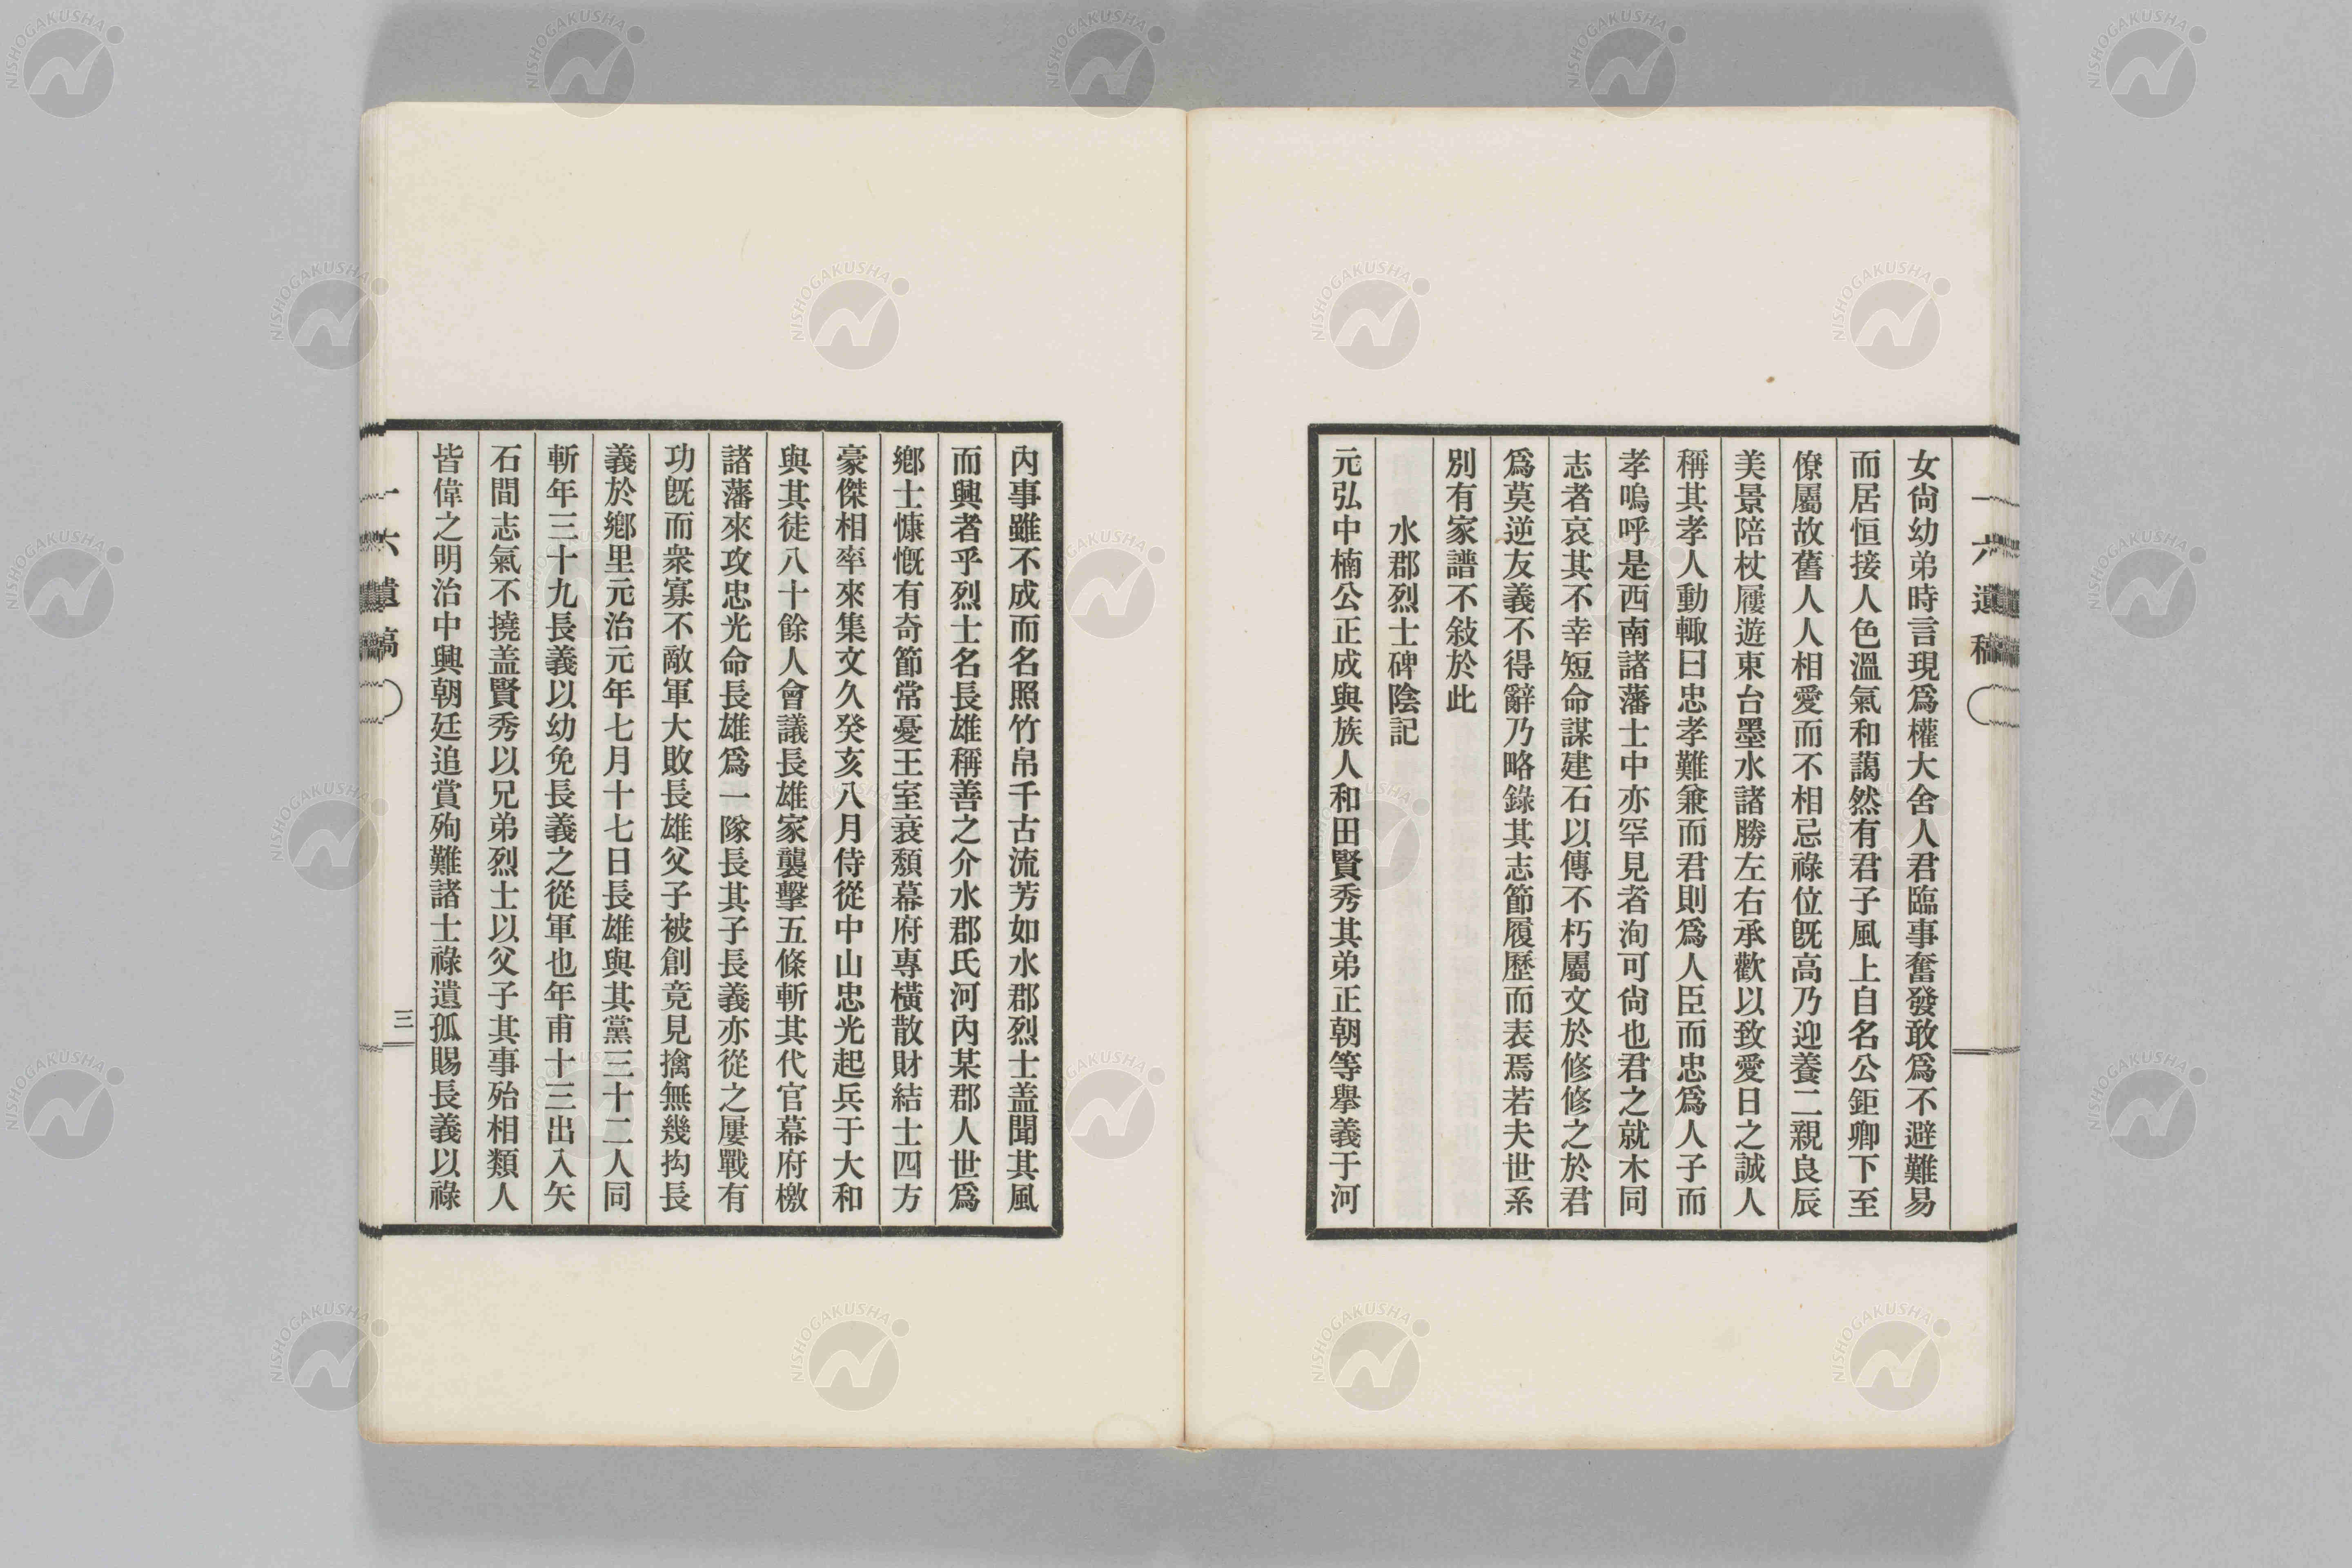 女尙幼弟時言現爲權大舍人君臨事奮發敢爲不避難易
而居恒接人色溫氣和藹然有君子風上自名公鉅卿下至
僚屬故舊人人相愛而不相忌祿位旣高乃迎養二親良辰
美景陪杖屨遊東台墨水諸勝左右承歡以致愛日之誠人
稱其孝人動輙曰忠孝難兼而君則爲人臣而忠爲人子而
孝嗚呼是西南諸藩士中亦罕見者洵可尙也君之就木同
志者哀其不幸短命謀建石以傳不朽屬文於修修之於君
爲莫逆友義不得辭乃略錄其志節履歷而表焉若夫世系
別有家譜不敍於此
水郡烈士碑陰記
元弘中楠公正成與族人和田賢秀其弟正朝等擧義于河
內事雖不成而名照竹帛千古流芳如水郡烈士盖聞其風
而興者乎烈士名長雄稱善之介水郡氏河內某郡人世爲
鄕士慷慨有奇節常憂王室衰頽幕府專橫散財結士四方
豪傑相率來集文久癸亥八月侍從中山忠光起兵于大和
與其徒八十餘人會議長雄家襲擊五條斬其代官幕府檄
諸藩來攻忠光命長雄爲一隊長其子長義亦從之屢戰有
功旣而衆寡不敵軍大敗長雄父子被創竟見擒無幾抅長
義於鄕里元治元年七月十七日長雄與其黨三十二人同
斬年三十九長義以幼免長義之從軍也年甫十三出入矢
石間志氣不撓盖賢秀以兄弟烈士以父子其事殆相類人
皆偉之明治中興朝廷追賞殉難諸士祿遺孤賜長義以祿
一六遺稿
三
一六遺稿
NISHOGAKUSHA